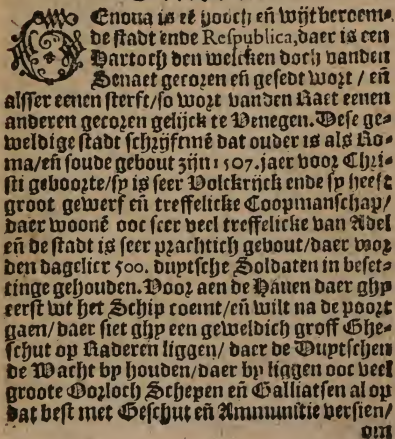 GEnoua is eē hooch eñ wijt beroem⸗
de stadt ende Respublica, daer is een
Hartoch den welcken doch vanden
Senaet gecozen eñ gesedt wozt / eñ
alsser eenen sterft/so wozt vanden Raet eenen
anderen gecozen gelijck te Venegen. Dese ge⸗
weldige stadt schzijftmē dat ouder is als Ro⸗
ma/eñ soude gebout zijn 1507. jaer vooz Chzi⸗
sti geboozte/sy is seer Volckrijck ende sy heeft
groot gewerf eñ treffelicke Coopmanschap/
daer woonē ooc seer veel treffelicke van Adel
eñ de stadt is seer pzachtich gebout/daer woz
den dagelicx 500. duptsche Soldaten in beset⸗
tinge gehouden. Vooz aen de Hauen daer ghy
eerst wt het Schip coemt/eñ wilt na de poozt
gaen/daer siet ghy een geweldich groff Ghe⸗
schut op Raderen liggen/ daer de Duptschen
de Wacht by houden/daer by liggen ooc veel
groote Oozloch Schepen eñ Galliatsen al op
dat best met Geschut eñ Ammunitie versien/
om